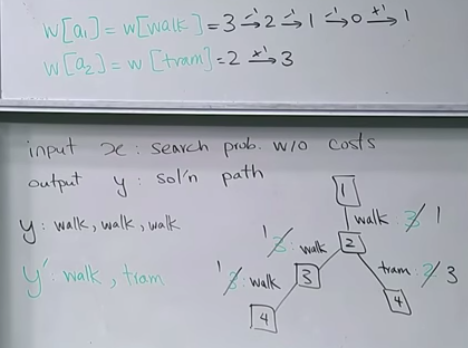 w[a₁] = w[walk] = 3 →⁻¹ 2 →⁻¹ 1 →⁻¹ 0 →⁺¹ 1
w[a₂] = w[tram] = 2 →⁺¹ 3
input x: search prob. w/o costs
output y: sol'n path
1
walk: 3 1
y: walk, walk, walk
1 3: walk
2
y': walk, tram
1 3: walk
3
tram: 2 3
4
4